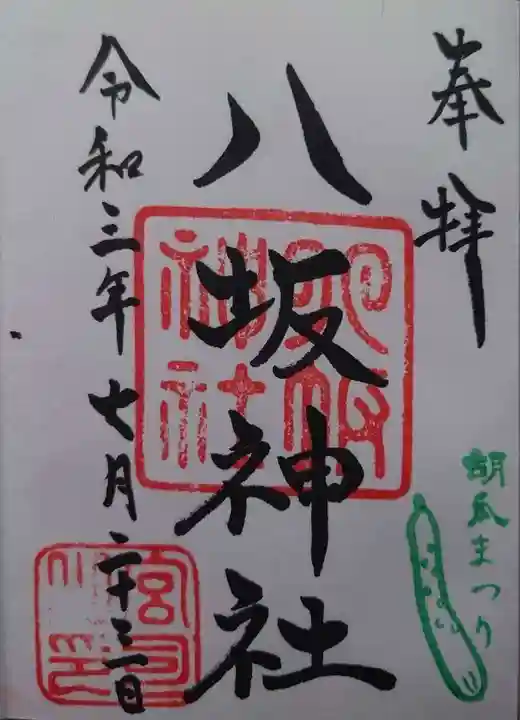 奉拝
胡瓜まつり
八坂神社
令和三年七月二十三日